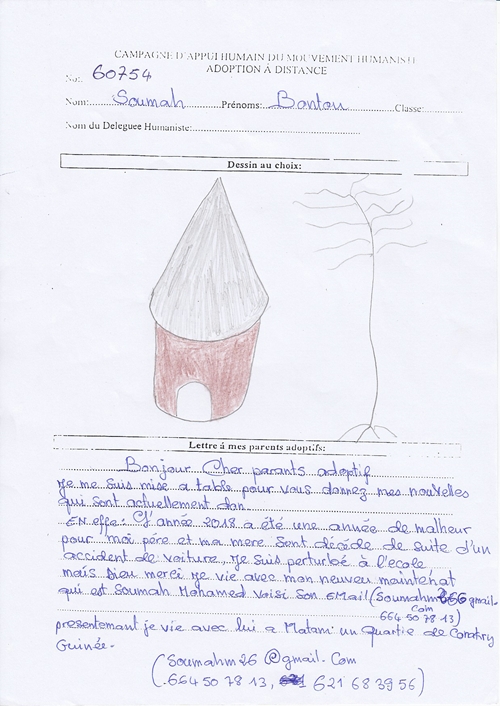 CAMPAGNE D'APPUI HUMAIN DU MOUVEMENT HUMANISTE
ADOPTION À DISTANCE
No: 60754
Nom: Soumah Prénoms: Bantou Classe:
Nom du Deleguee Humaniste:
Dessin au choix:
Lettre á mes parents adoptifs:
Bonjour Cher parants adoptif
Je me suis mise a table pour vous donnez mes nouvelles
qui sont actuellement dan
EN effe: L'année 2018 a été une année de malheur
pour moi père et ma mere. Sont décédé de suite d'un
accident de voiture, je suis perturbé à l'ecole
mais Dieu merci je vie avec mon neuveu maintenat
qui est Soumah Mohamed Voisi son EMail (Soumahm266 gmail.
Com
664 50 78 13)
presentemant je vie avec lui a Matam: un Quartie de Conakry
Guinée.
(Soumahm26 @gmail. Com
664 50 78 13, 621 68 39 56)